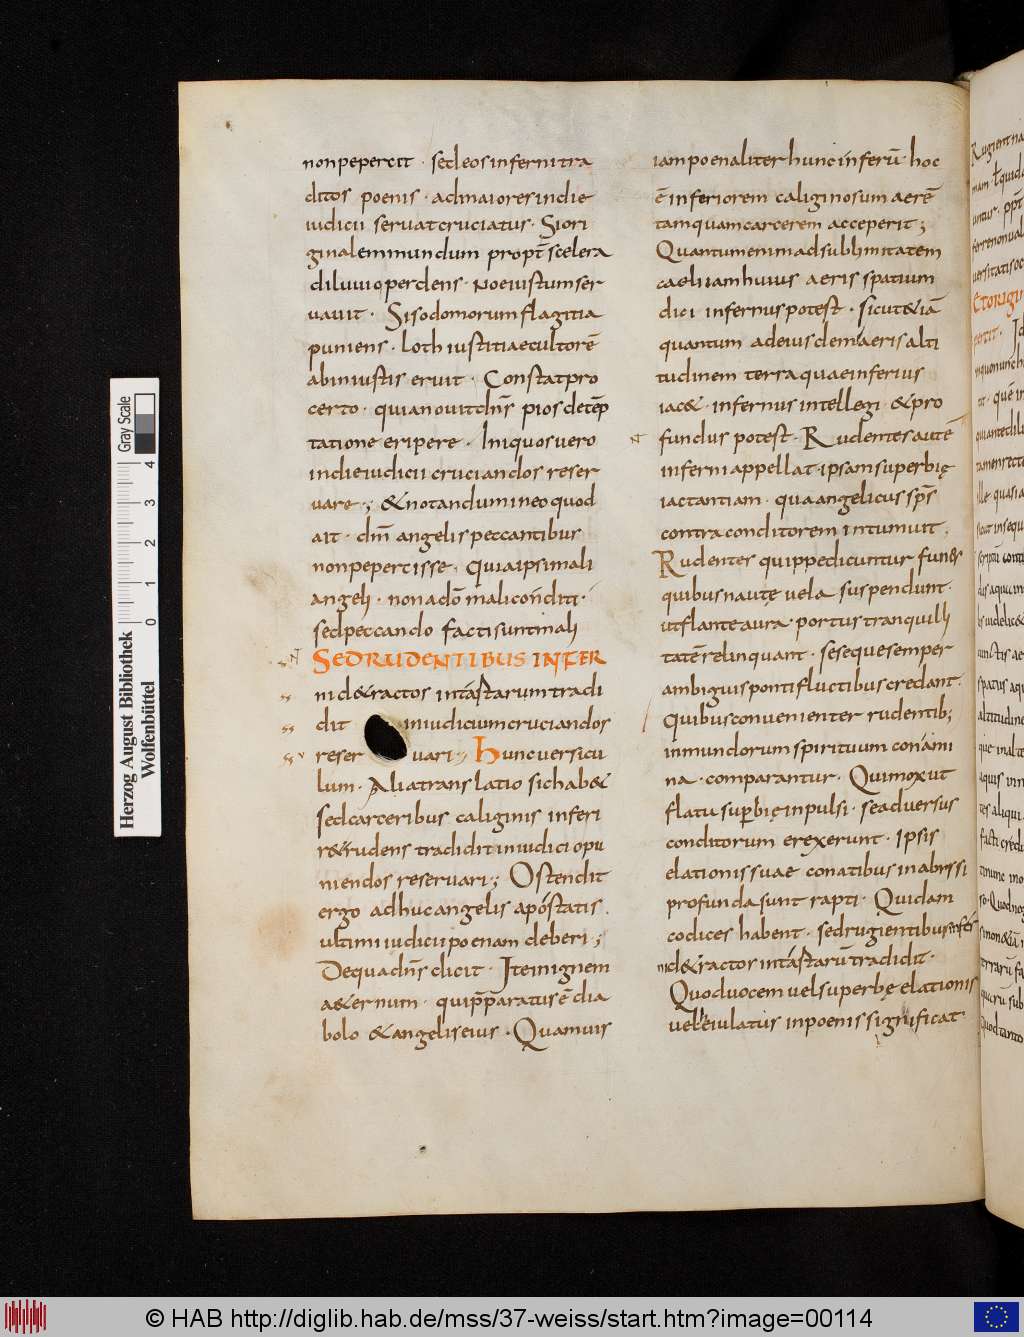 nonpepercit · sed eos inferni tra
ditos poenis · ad maiores in die
iudicii seruat cruciatus · Si ori
ginalem mundum propt̄ scelera
diluuio perdens · Noe iustum ser
uauit · Si sodomorum flagitia
puniens · loth iustitiae cultorē
ab iniustis eruit · Constat pro
certo · quia nouit dn̄s pios de tēp
tatione eripere · Iniquos uero
in die iudicii cruciandos reser
uare ·; & notandum in eo quod
ait · dm̄ angelis peccantibus
non pepercisse · quia ipsi mali
angeli · non a dō mali conditi ·
sed peccando facti sunt mali
SED RUDENTIBUS INFER
ni detractos in tartarum tradi
dit in iudicium cruciandos
reser uari ·; Hunc uersicu
lum · Alia translatio sic hab&
sed carceribus caliginis inferi
r&rudens tradidit in iudicio pu
niendos reseruari ·; Ostendit
ergo adhuc angelis apostatis
ultimi iudicii poenam deberi ;
De qua dn̄s dicit · Ite in ignem
a&ernum · qui p̄paratus ē dia
bolo & angelis eius · Quamuis
iam poenaliter hunc inferū · hoc
ē inferiorem caliginosum aerē
tamquam carcerem acceperit ;
Quantum enim ad sublimitatem
caeli iam huius aeris spatium
dici infernus potest · sicut & iā
quantum ad eiusdem aeris alti
tudinem terra quae inferius
iac& · infernus intellegi · & pro
fundus potest · Rudentes autē
inferni appellat ipsam superbię
iactantiam · qua angelicus sp̄s
contra conditorem intumuit ·
Rudentes quippe dicuntur funes
quibus nautę uela suspendunt ·
ut flante aura · portus tranquilli
tatē relinquant · seseque semper
ambiguis ponti fluctibus credant ·
Quibus conuenienter rudentib;
inmundorum spirituum conami
na · comparantur · Qui mox ut
flatu superbię inpulsi · se aduersus
conditorum erexerunt · Ipsis
elationis suae conatibus in abissi
profunda sunt rapti · Quidam
codices habent · sed rugientibus inferi
ni d&ractos in tartarū tradidit ·
Quod uocem uel superbę elationis
uel eiulatus in poenis significat ·
Herzog August Bibliothek
Wolfenbüttel
Gray Scale
0 1 2 3 4
© HAB http://diglib.hab.de/mss/37-weiss/start.htm?image=00114